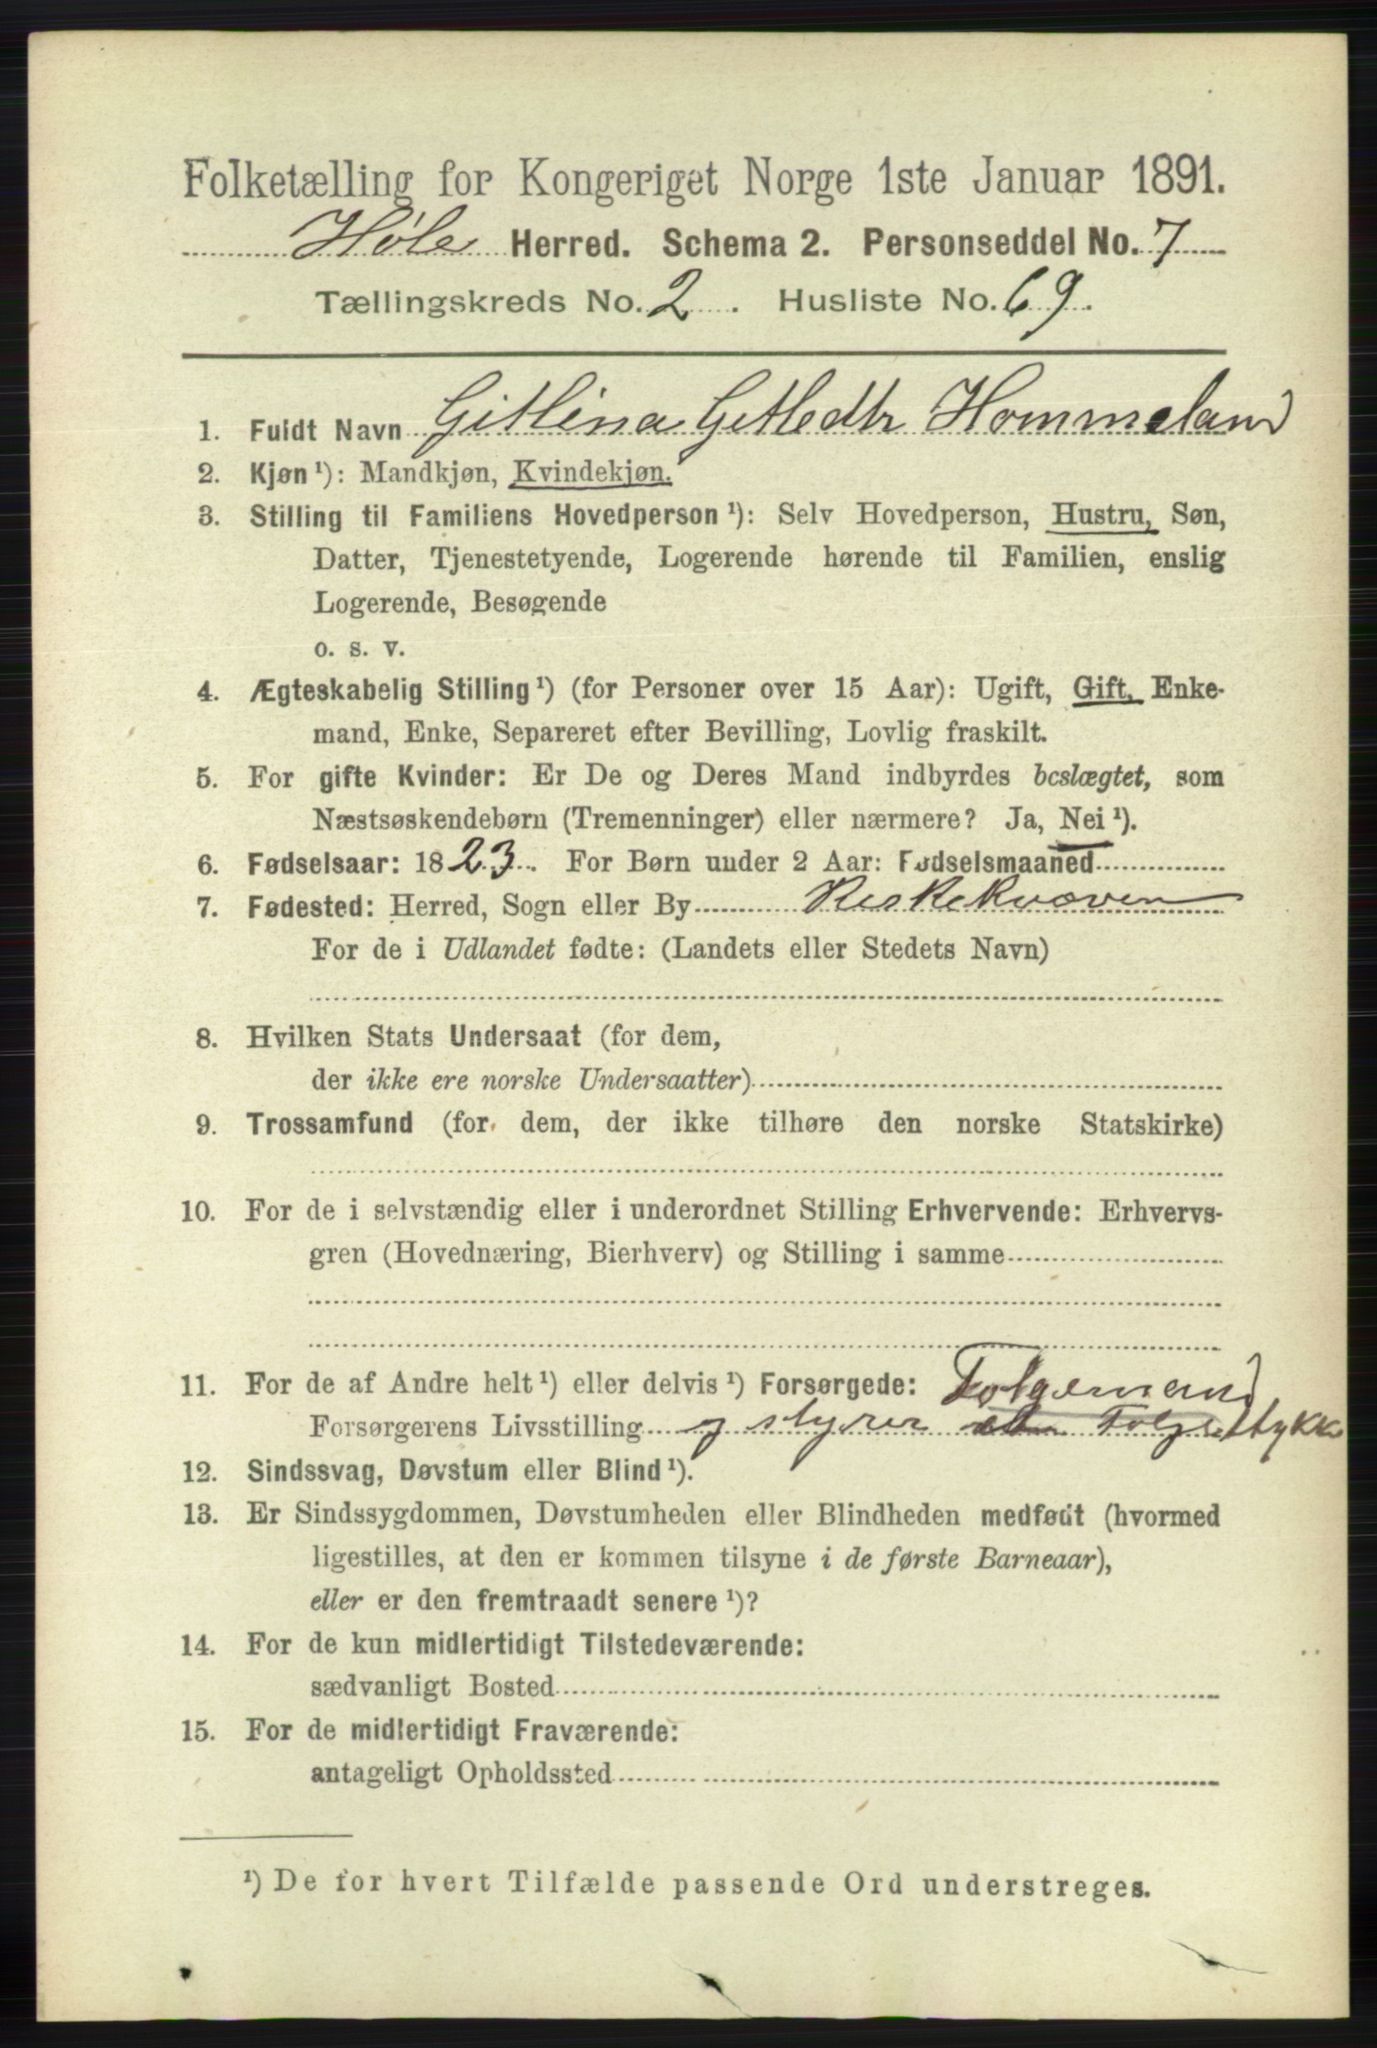 Folketælling for Kongeriget Norge 1ste Januar 1891.
Høle Herred. Schema 2. Personseddel No. 7
Tællingskreds No. 2. Husliste No. 69.
1. Fuldt Navn Gitlina Getledtr Hommeland
2. Kjøn ¹): Mandkjøn, Kvindekjøn.
3. Stilling til Familiens Hovedperson ¹): Selv Hovedperson, Hustru, Søn,
Datter, Tjenestetyende, Logerende hørende til Familien, enslig
Logerende, Besøgende
o. s. v.
4. Ægteskabelig Stilling ¹) (for Personer over 15 Aar): Ugift, Gift, Enke-
mand, Enke, Separeret efter Bevilling, Lovlig fraskilt.
5. For gifte Kvinder: Er De og Deres Mand indbyrdes beslægtet, som
Næstsøskendebørn (Tremenninger) eller nærmere? Ja, Nei ¹).
6. Fødselsaar: 1823. For Børn under 2 Aar: Fødselsmaaned
7. Fødested: Herred, Sogn eller By
For de i Udlandet fødte: (Landets eller Stedets Navn)
8. Hvilken Stats Undersaat (for dem,
der ikke ere norske Undersaatter)
9. Trossamfund (for dem, der ikke tilhøre den norske Statskirke)
10. For de i selvstændig eller i underordnet Stilling Erhvervende: Erhvervs-
gren (Hovednæring, Bierhverv) og Stilling i samme
11. For de af Andre helt ¹) eller delvis ¹) Forsørgede: Folgemand
Forsørgerens Livsstilling og styrer Folgestykke
12. Sindssvag, Døvstum eller Blind ¹).
13. Er Sindssygdommen, Døvstumheden eller Blindheden medfødt (hvormed
ligestilles, at den er kommen tilsyne i de første Barneaar),
eller er den fremtraadt senere ¹)?
14. For de kun midlertidigt Tilstedeværende:
sædvanligt Bosted
15. For de midlertidigt Fraværende:
antageligt Opholdssted
¹) De for hvert Tilfælde passende Ord understreges.